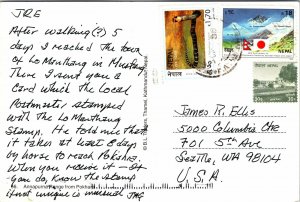 JRE
After walking(?) 5
days I reached the town
of Lo Monthang in Mustang
There I sent you a
Card which the local
Postmaster stamped
with the Lo Monthang
Stamp. He told me that
it takes at least 8 days
by horse to reach Pokhara.
When you receive it - If
you do, know the stamp
JRE
James R. Ellis
5000 Columbia Ctr
701 5th Ave
Seattle, WA 98104
U.S.A.
नेपाल
NEPAL
Annapurna Range from Pokhara
Thamel, Kathmandu, Nepal